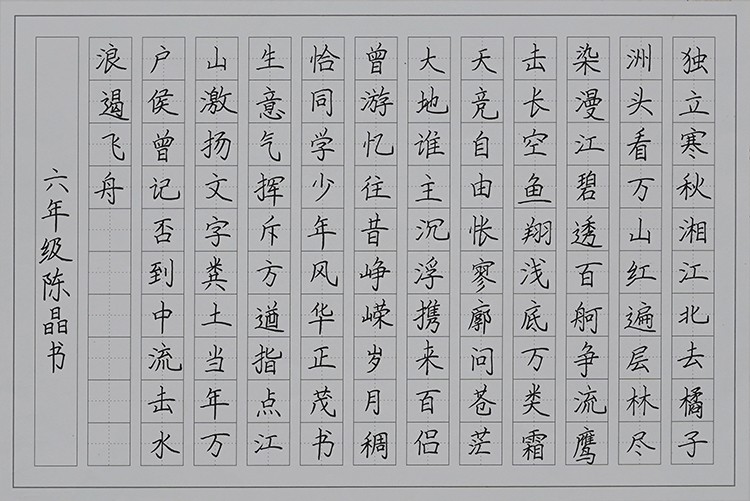 独立寒秋湘江北去橘子
洲头看万山红遍层林尽
染漫江碧透百舸争流鹰
击长空鱼翔浅底万类霜
天竞自由怅寥廓问苍茫
大地谁主沉浮携来百侣
曾游忆往昔峥嵘岁月稠
恰同学少年风华正茂书
生意气挥斥方遒指点江
山激扬文字粪土当年万
户侯曾记否到中流击水
浪遏飞舟
六年级陈晶书